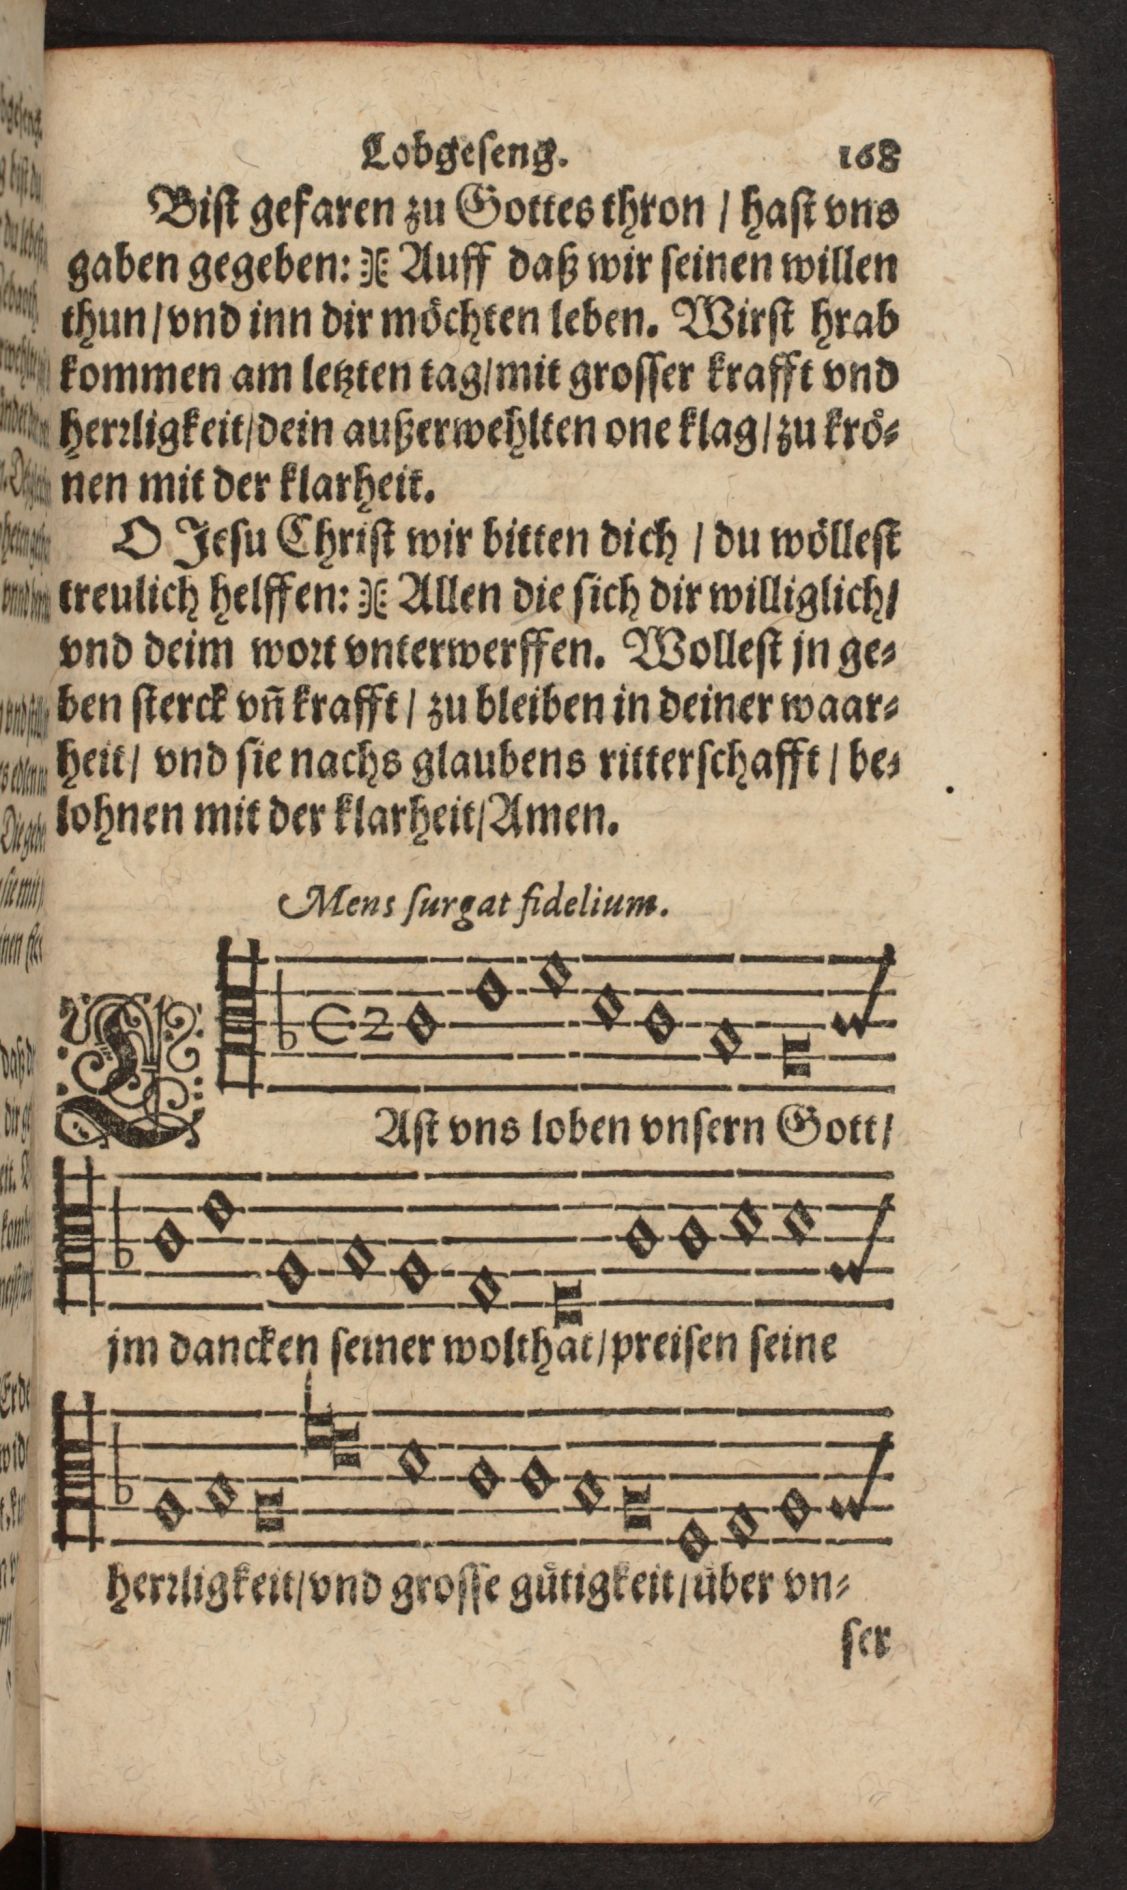 Lobgeseng. 168
Bist gefaren zu Gottes thron / hast vns
gaben gegeben: Auff daß wir seinen willen
thun / vnd inn dir möchten leben. Wirst hrab
kommen am letzten tag / mit grosser krafft vnd
herrligkeit / dein außerwehlten one klag / zu krö-
nen mit der klarheit.
O Jesu Christ wir bitten dich / du wöllest
treulich helffen: Allen die sich dir williglich /
vnd deim wort vnterwerffen. Wollest jn ge-
ben sterck vñ krafft / zu bleiben in deiner waar-
heit / vnd sie nachs glaubens ritterschafft / be-
lohnen mit der klarheit / Amen.
Mens surgat fidelium.
LAst vns loben vnsern Gott /
jm dancken seiner wolthat / preisen seine
herrligkeit / vnd grosse gütigkeit / über vn-
ser